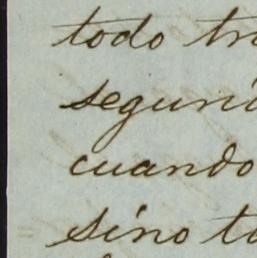 todo tr
seguri
cuando
sino to